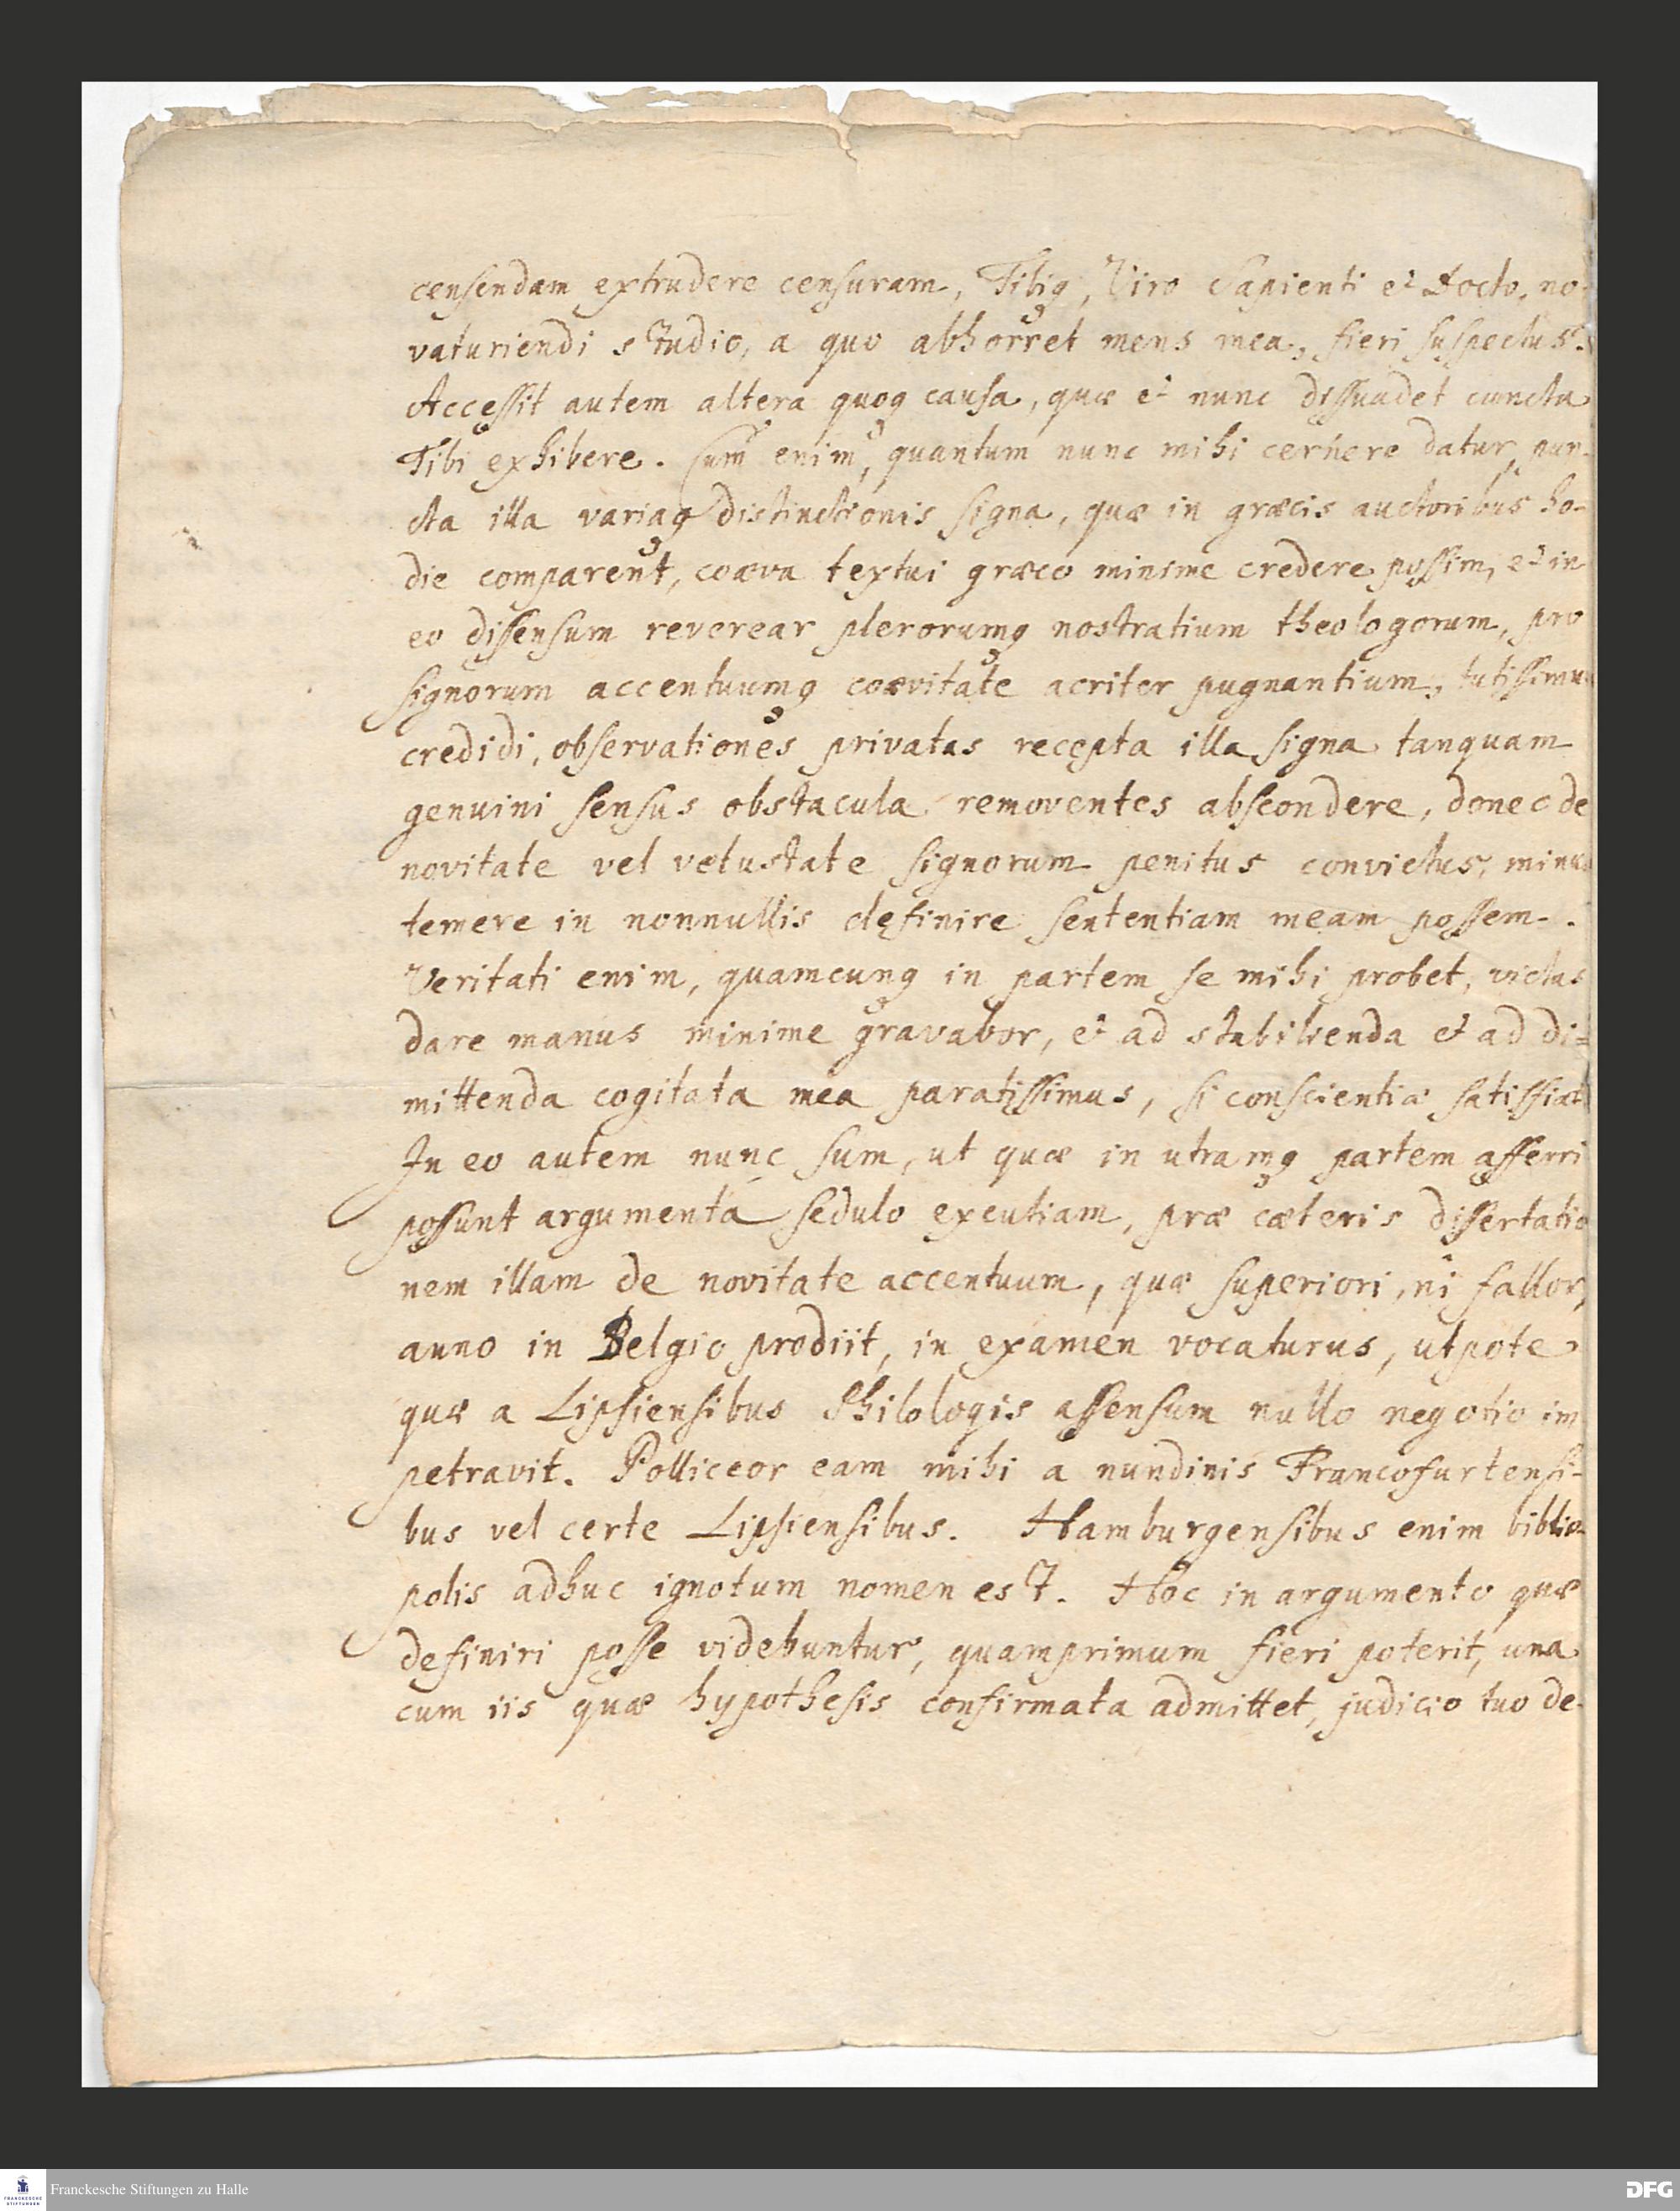 censendam extrudere censuram, Tibiq, Viro Sapienti et Docto, no-
vaturiendi studio, a quo abhorret mens mea, fieri suspectus.
Accessit autem altera quoq causa, quæ et nunc dissuadet cuncta
Tibi exhibere. Cum enim, quantum nunc mihi cernere datur, pun-
cta illa variaq distinctionis signa, quæ in græcis auctoribus ho-
die comparent, coæva textui græco minime credere possim, et in
eo dissensum reverear plerorumq nostratium theologorum, pro
signorum accentuumq coævitate acriter pugnantium, tutissimum
credidi, observationes privatas recepta illa signa tanquam
genuini sensus obstacula removentes abscondere, donec de
novitate vel vetustate signorum penitus convictus, minus
temere in nonnullis definire sententiam meam possem.
Veritati enim, quamcunq in partem se mihi probet, victas
dare manus minime gravabor, et ad stabilienda et ad di=
mittenda cogitata mea paratissimus, si conscientiæ satisfiat
In eo autem nunc sum, ut quæ in utramq partem afferri
possunt argumenta sedulo excutiam, præ cæteris dissertatio
nem illam de novitate accentuum, quæ superiori, ni fallor,
anno in Belgio prodiit, in examen vocaturus, utpote
quæ a Lipsiensibus Philologis assensum nullo negotio im
petravit. Polliceor eam mihi a nundinis Francofurtensi-
bus vel certe Lipsiensibus. Hamburgensibus enim biblio-
polis adhuc ignotum nomen est. Hoc in argumento quæ
definiri posse videbuntur, quamprimum fieri poterit, una
cum iis quæ hypothesis confirmata admittet, judicio tuo de-
FRANCKESCHE
STIFTUNGEN
Franckesche Stiftungen zu Halle
DFG